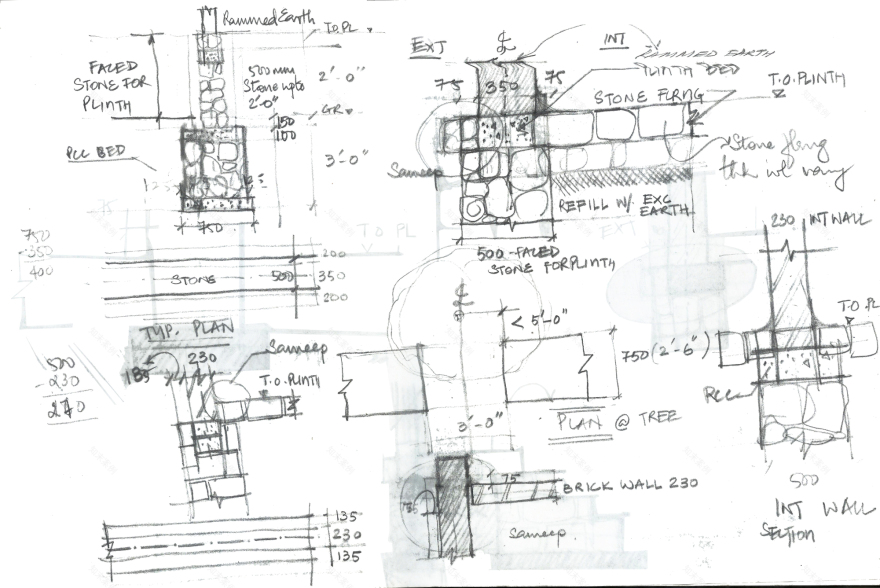 Rammed Earth
T.O.PL
FACED
STONE FOR
PLINTH
500mm
Stone upto
2'-0"
2'-0"
GR
150
100
PCC BED
3'-0"
750
750
-350
400
200
STONE
500
350
200
TYP. PLAN
500
-230
270
135
230
Sameep
T.O.PLINTH
135
230
135
EXT
℄
INT
RAMMED EARTH
PLINTH BED
75
350
75
T.O.PLINTH
STONE FLRNG
Sameep
REFILL W/ EXC
EARTH
500-FACED
STONE FOR PLINTH
T.O PL
EXT
℄
< 5'-0"
750 (2'-6")
PLAN @ TREE
3'-0"
75
135
BRICK WALL 230
Sameep
230 INT WALL
T.O.PL
RCC
500
INT WALL
SECTION